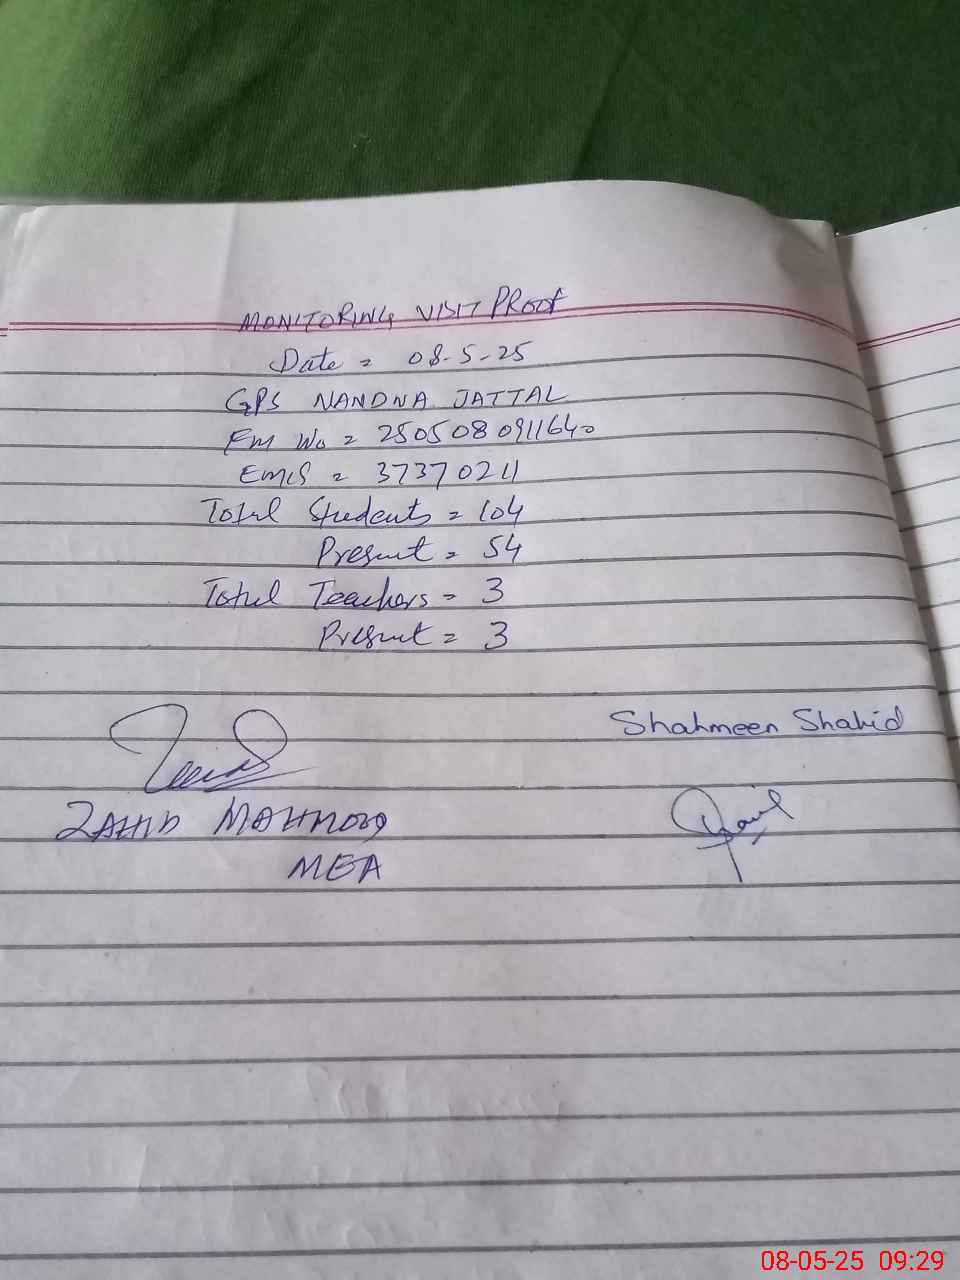 MONITORING VISIT PROOF
Date = 08-5-25
GPS NANDNA JATTAL
FM No = 2505080911640
EMIS = 37370211
Total Students = 104
Present = 54
Total Teachers = 3
Present = 3
Shahmeen Shahid
ZAHID MAHMOOD
MEA
08-05-25 09:29